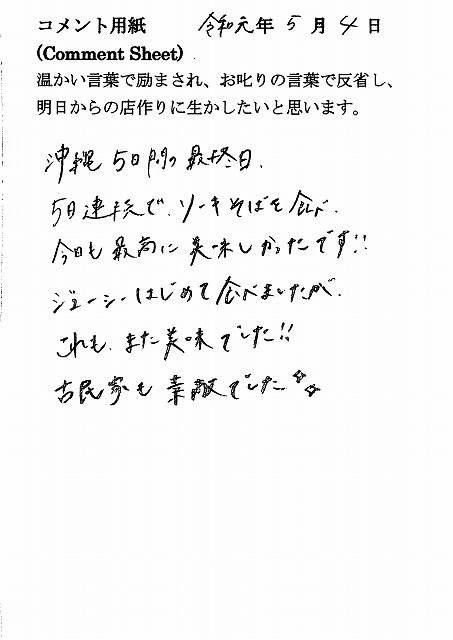 コメント用紙 令和元年 5月4日
(Comment Sheet)
温かい言葉で励まされ、お叱りの言葉で反省し、
明日からの店作りに生かしたいと思います。
沖縄 5日間の最終日、
5日連続で、ソーキそばを食べ、
今日も最高に美味しかったです!!
ジューシーはじめて食べましたが、
これも、また美味でした!!
古民家も素敵でした☆☆